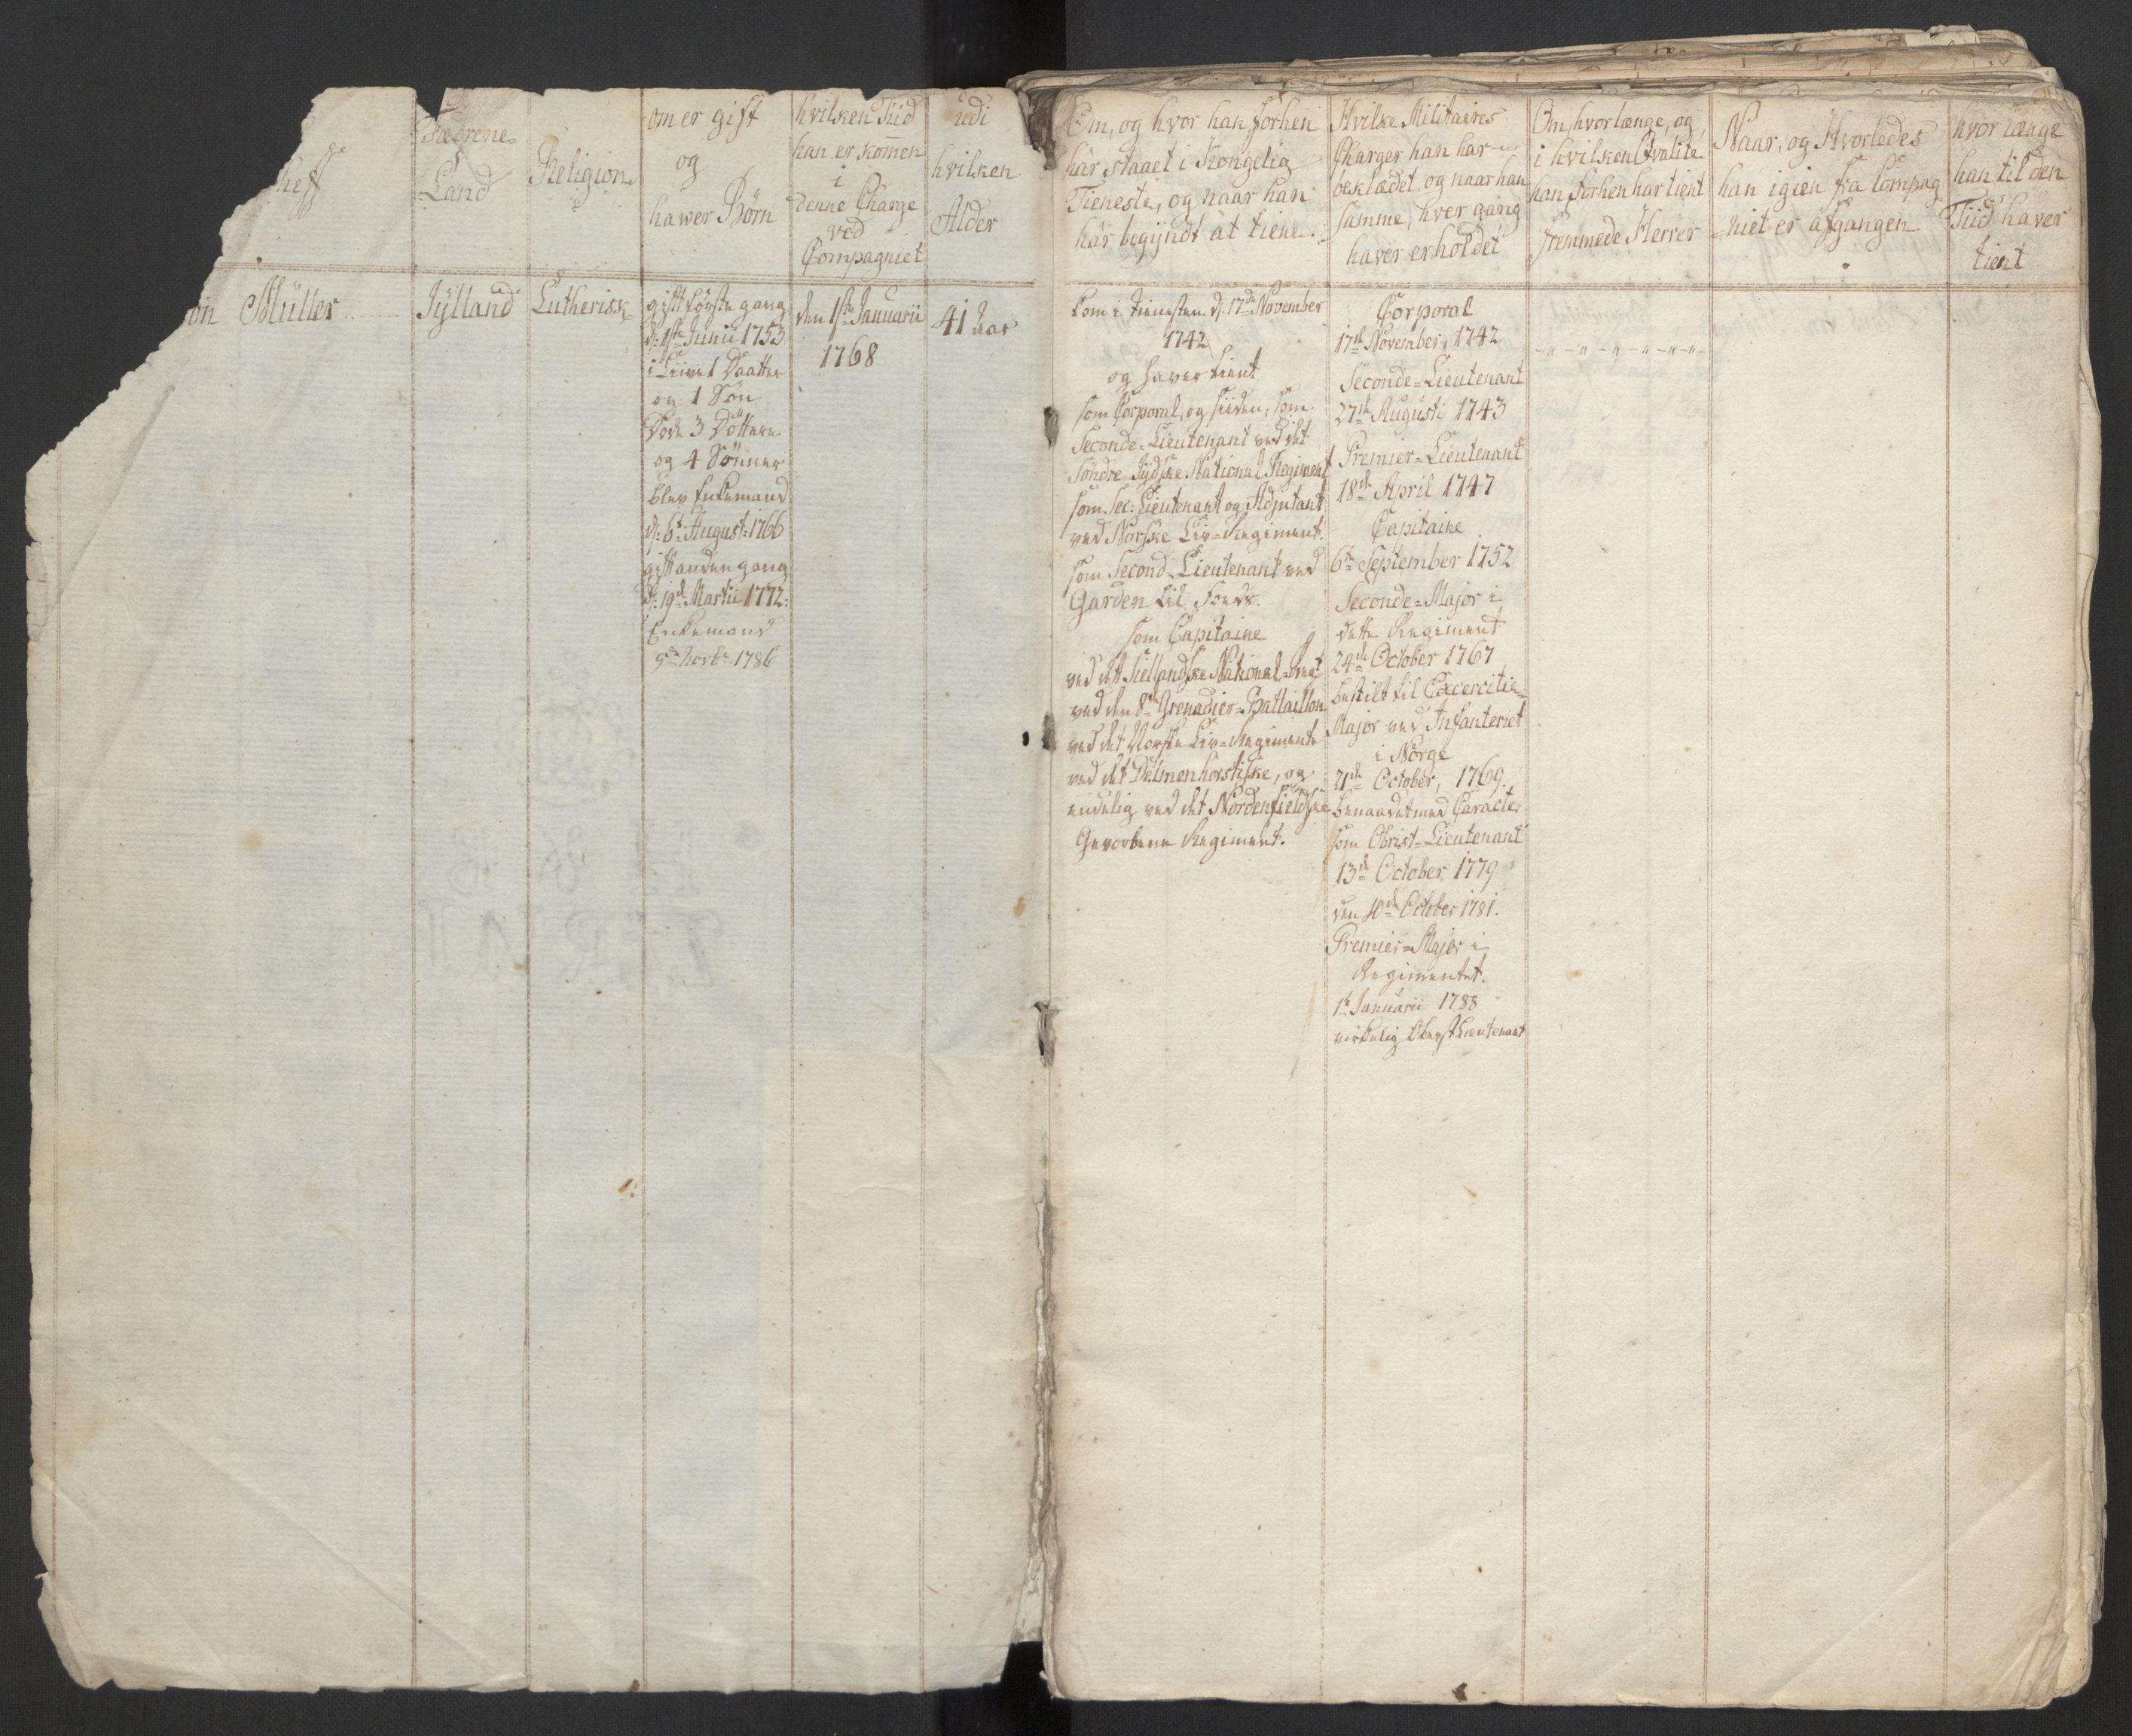 heff
Fædrene-
Land
Religion
om er gift
og
hawer Børn
hvilken Tiid
han er komen
i
denne Charge
ved
Compagniet
udi
hvilken
Alder
Om, og hvor han forhen
har staaet i Kongelig
Tieneste, og naar han
har begyndt at tiene.
Hvilke Militaires
Charger han har
beklædet, og naar han
samme, hver gang
haver erholdet
Om, hvorlænge, og
i hvilken Qvalité
han forhen har tient
fremmede Herrer
Naar, og Hvorledes
han igien fra Compag
niet er afgangen
hvor længe
han til den
Tiid haver
tient
on Müller
Jylland
Lutherisk
gift første gang
d: 1ste Junii 1753
i Live 1 Daatter
og 1 Søn
Døde 3 Døttere
og 4 Sønner
blev Enkemand
d: 6te August: 1766
gift anden gang
d: 19de Martii 1772:
Enkemand
9de Novbr 1786
den 1ste Januarii
1768
41 Aar
kom i Tienesten d: 17de November
1742
og haver tient
som Corporal, og siiden, som
Seconde-Lieutenant ved det
Søndre-Jydske National Regiment
som Sec: Lieutenant og Adjutant
ved Norske Liv-Regiment.
som Second-Lieutenant ved
Garden til Foeds.
som Capitaine
ved det Siellandske National-Regt
ved den 8de Grenadier-Battaillon
ved det Norske Liv-Regimente
ved det Delmenhorstiske, og
endelig ved det Nordenfieldske
Gevorbene Regiment.
Corporal
17de November, 1742
Seconde-Lieutenant
27de Augusti 1743
Premier-Lieutenant
18de April 1747
Capitaine
6te September 1752
Seconde-Major i
dette Regiment
24de October 1767
bestilt til Excercitie-
Major ved Infanteriet
i Norge
21de October, 1769.
benaadet med Caracter
som Obrist-Lieutenant
13de October 1779
den 10de October 1781.
Premier-Major i
Regimentet.
1te Januarii 1788
virkelig Oberst Lieutenant